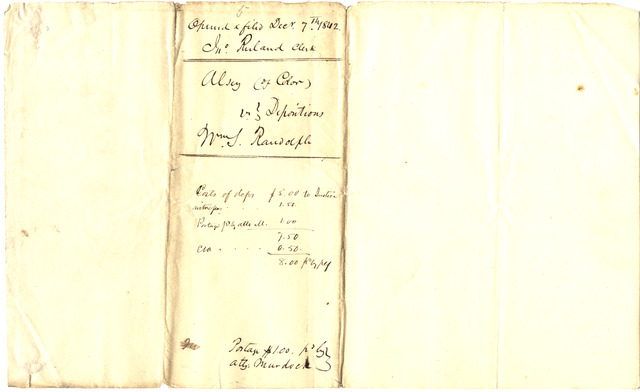 Opened & filed Decr. 7th 1842
Jno. Ruland Clerk
Alsey (of Color)
vs } Depositions
Wm. S. Randolph
Costs of deps $5.00 to Justice
witnesses 1.50
Postage pd by atty M. 1.00
7.50
Clk 0.50
8.00 pd by plf
Postage $1.00 pd by
atty. Murdock